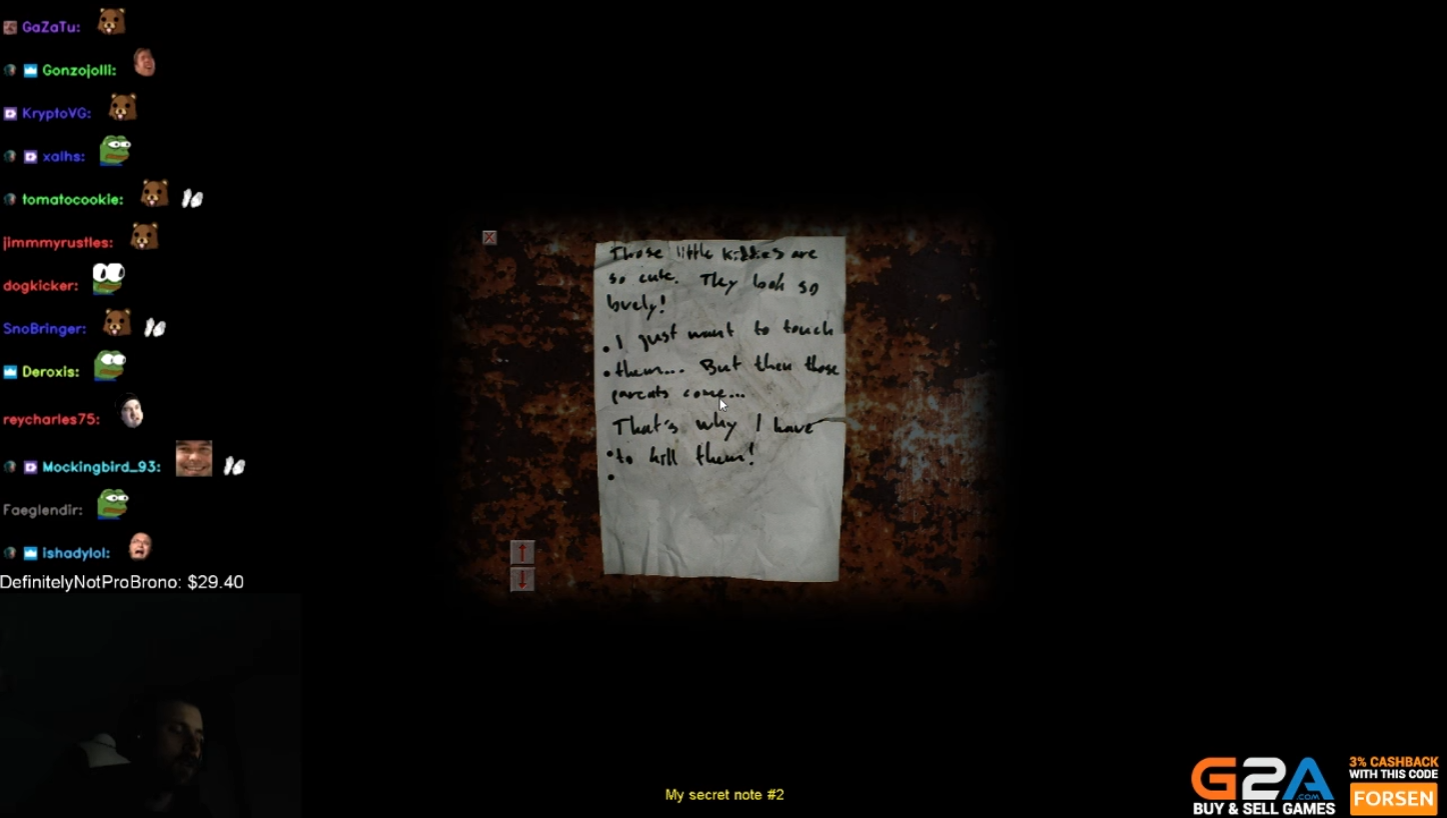 GaZaTu:
Gonzojolli:
KryptoVG:
xalhs:
tomatocookie:
jimmmyrustles:
dogkicker:
SnoBringer:
Deroxis:
reycharles75:
Mockingbird_93:
Faeglendir:
ishadylol:
DefinitelyNotProBrono: $29.40
Those little are
so cute. They look so
lovely!
I just want to touch
them... But then those
parents come...
That's why I have
to kill them!
My secret note #2
G2A
.COM
BUY & SELL GAMES
3% CASHBACK
WITH THIS CODE
FORSEN